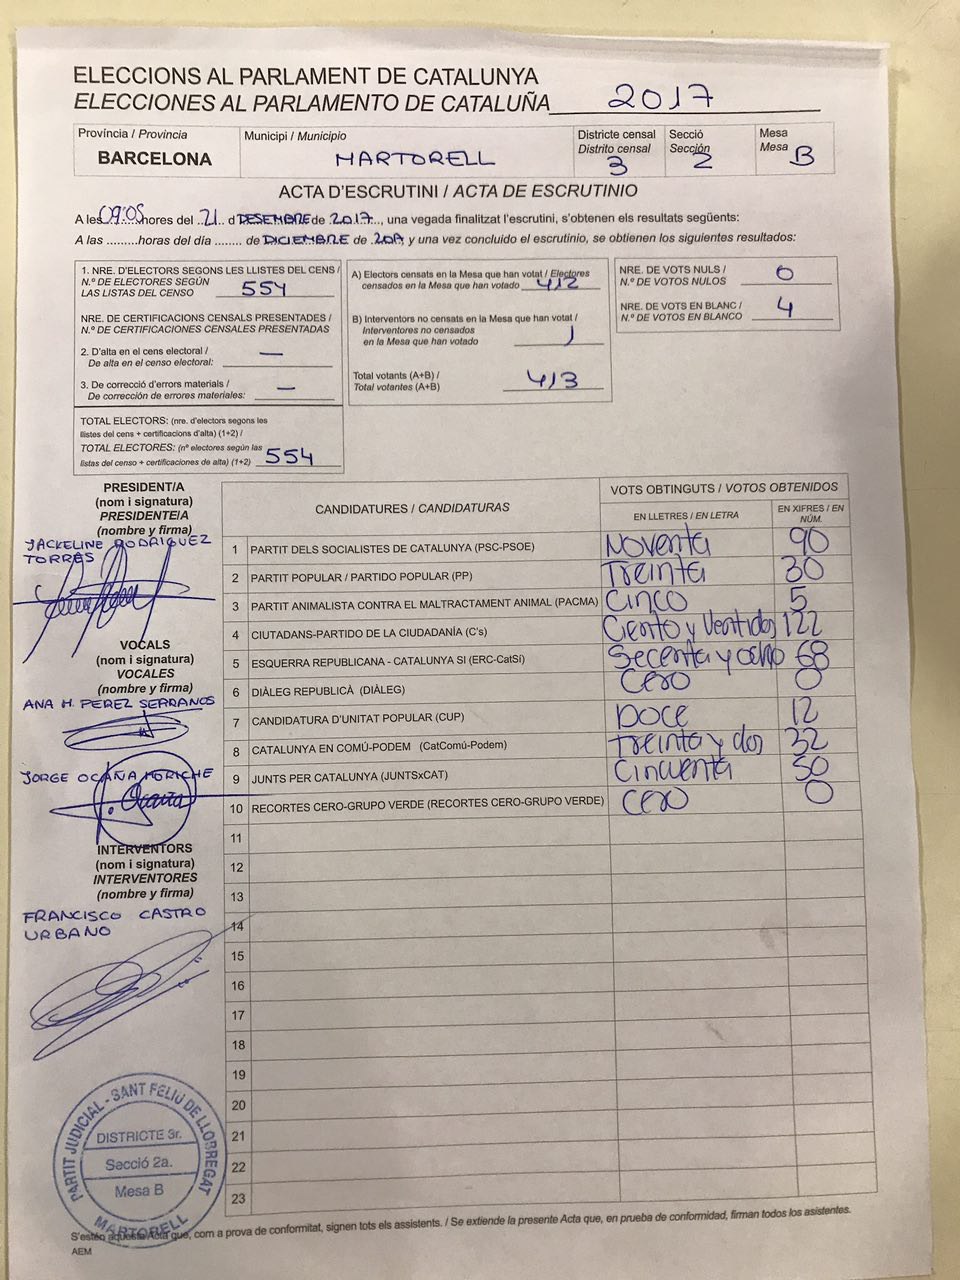 ELECCIONS AL PARLAMENT DE CATALUNYA
ELECCIONES AL PARLAMENTO DE CATALUÑA 2017
Província / Provincia
BARCELONA
Municipi / Municipio
MARTORELL
Districte censal
Distrito censal
3
Secció
Sección
2
Mesa
Mesa B
ACTA D'ESCRUTINI / ACTA DE ESCRUTINIO
A les 09:05 hores del 21 d DESEMBRE de 2017, una vegada finalitzat l'escrutini, s'obtenen els resultats següents:
A las .........horas del día ........ de DICIEMBRE de 2017 y una vez concluido el escrutinio, se obtienen los siguientes resultados:
1. NRE. D'ELECTORS SEGONS LES LLISTES DEL CENS /
N.º DE ELECTORES SEGÚN
LAS LISTAS DEL CENSO 554
NRE. DE CERTIFICACIONS CENSALS PRESENTADES /
N.º DE CERTIFICACIONES CENSALES PRESENTADAS
2. D'alta en el cens electoral /
De alta en el censo electoral: —
3. De correcció d'errors materials /
De corrección de errores materiales: —
TOTAL ELECTORS: (nre. d'electors segons les
llistes del cens + certificacions d'alta) (1+2) /
TOTAL ELECTORES: (nº electores según las
listas del censo + certificaciones de alta) (1+2) 554
A) Electors censats en la Mesa que han votat / Electores
censados en la Mesa que han votado 412
B) Interventors no censats en la Mesa que han votat /
Interventores no censados
en la Mesa que han votado 1
Total votants (A+B) /
Total votantes (A+B) 413
NRE. DE VOTS NULS /
N.º DE VOTOS NULOS 0
NRE. DE VOTS EN BLANC /
N.º DE VOTOS EN BLANCO 4
PRESIDENT/A
(nom i signatura)
PRESIDENTE/A
(nombre y firma)
JACKELINE RODRIGUEZ
TORRES
VOCALS
(nom i signatura)
VOCALES
(nombre y firma)
ANA M. PEREZ SERRANOS
JORGE OCAÑA MORICHE
J. Ocaña
INTERVENTORS
(nom i signatura)
INTERVENTORES
(nombre y firma)
FRANCISCO CASTRO
URBANO
CANDIDATURES / CANDIDATURAS
VOTS OBTINGUTS / VOTOS OBTENIDOS
EN LLETRES / EN LETRA
EN XIFRES / EN
NÚM.
1 PARTIT DELS SOCIALISTES DE CATALUNYA (PSC-PSOE) Noventa 90
2 PARTIT POPULAR / PARTIDO POPULAR (PP) Treinta 30
3 PARTIT ANIMALISTA CONTRA EL MALTRACTAMENT ANIMAL (PACMA) Cinco 5
4 CIUTADANS-PARTIDO DE LA CIUDADANÍA (C's) Ciento y Ventidos 122
5 ESQUERRA REPUBLICANA - CATALUNYA SI (ERC-CatSí) Secenta y ocho 68
6 DIÀLEG REPUBLICÀ (DIÀLEG) Cero 0
7 CANDIDATURA D'UNITAT POPULAR (CUP) DOCE 12
8 CATALUNYA EN COMÚ-PODEM (CatComú-Podem) Treinta y dos 32
9 JUNTS PER CATALUNYA (JUNTSxCAT) Cincuenta 50
10 RECORTES CERO-GRUPO VERDE (RECORTES CERO-GRUPO VERDE) Cero 0
11
12
13
14
15
16
17
18
19
20
21
22
23
PARTIT JUDICIAL - SANT FELIU DE LLOBREGAT
DISTRICTE 3r.
Secció 2a.
Mesa B
MARTORELL
S'estén aquesta Acta que, com a prova de conformitat, signen tots els assistents. / Se extiende la presente Acta que, en prueba de conformidad, firman todos los asistentes.
AEM